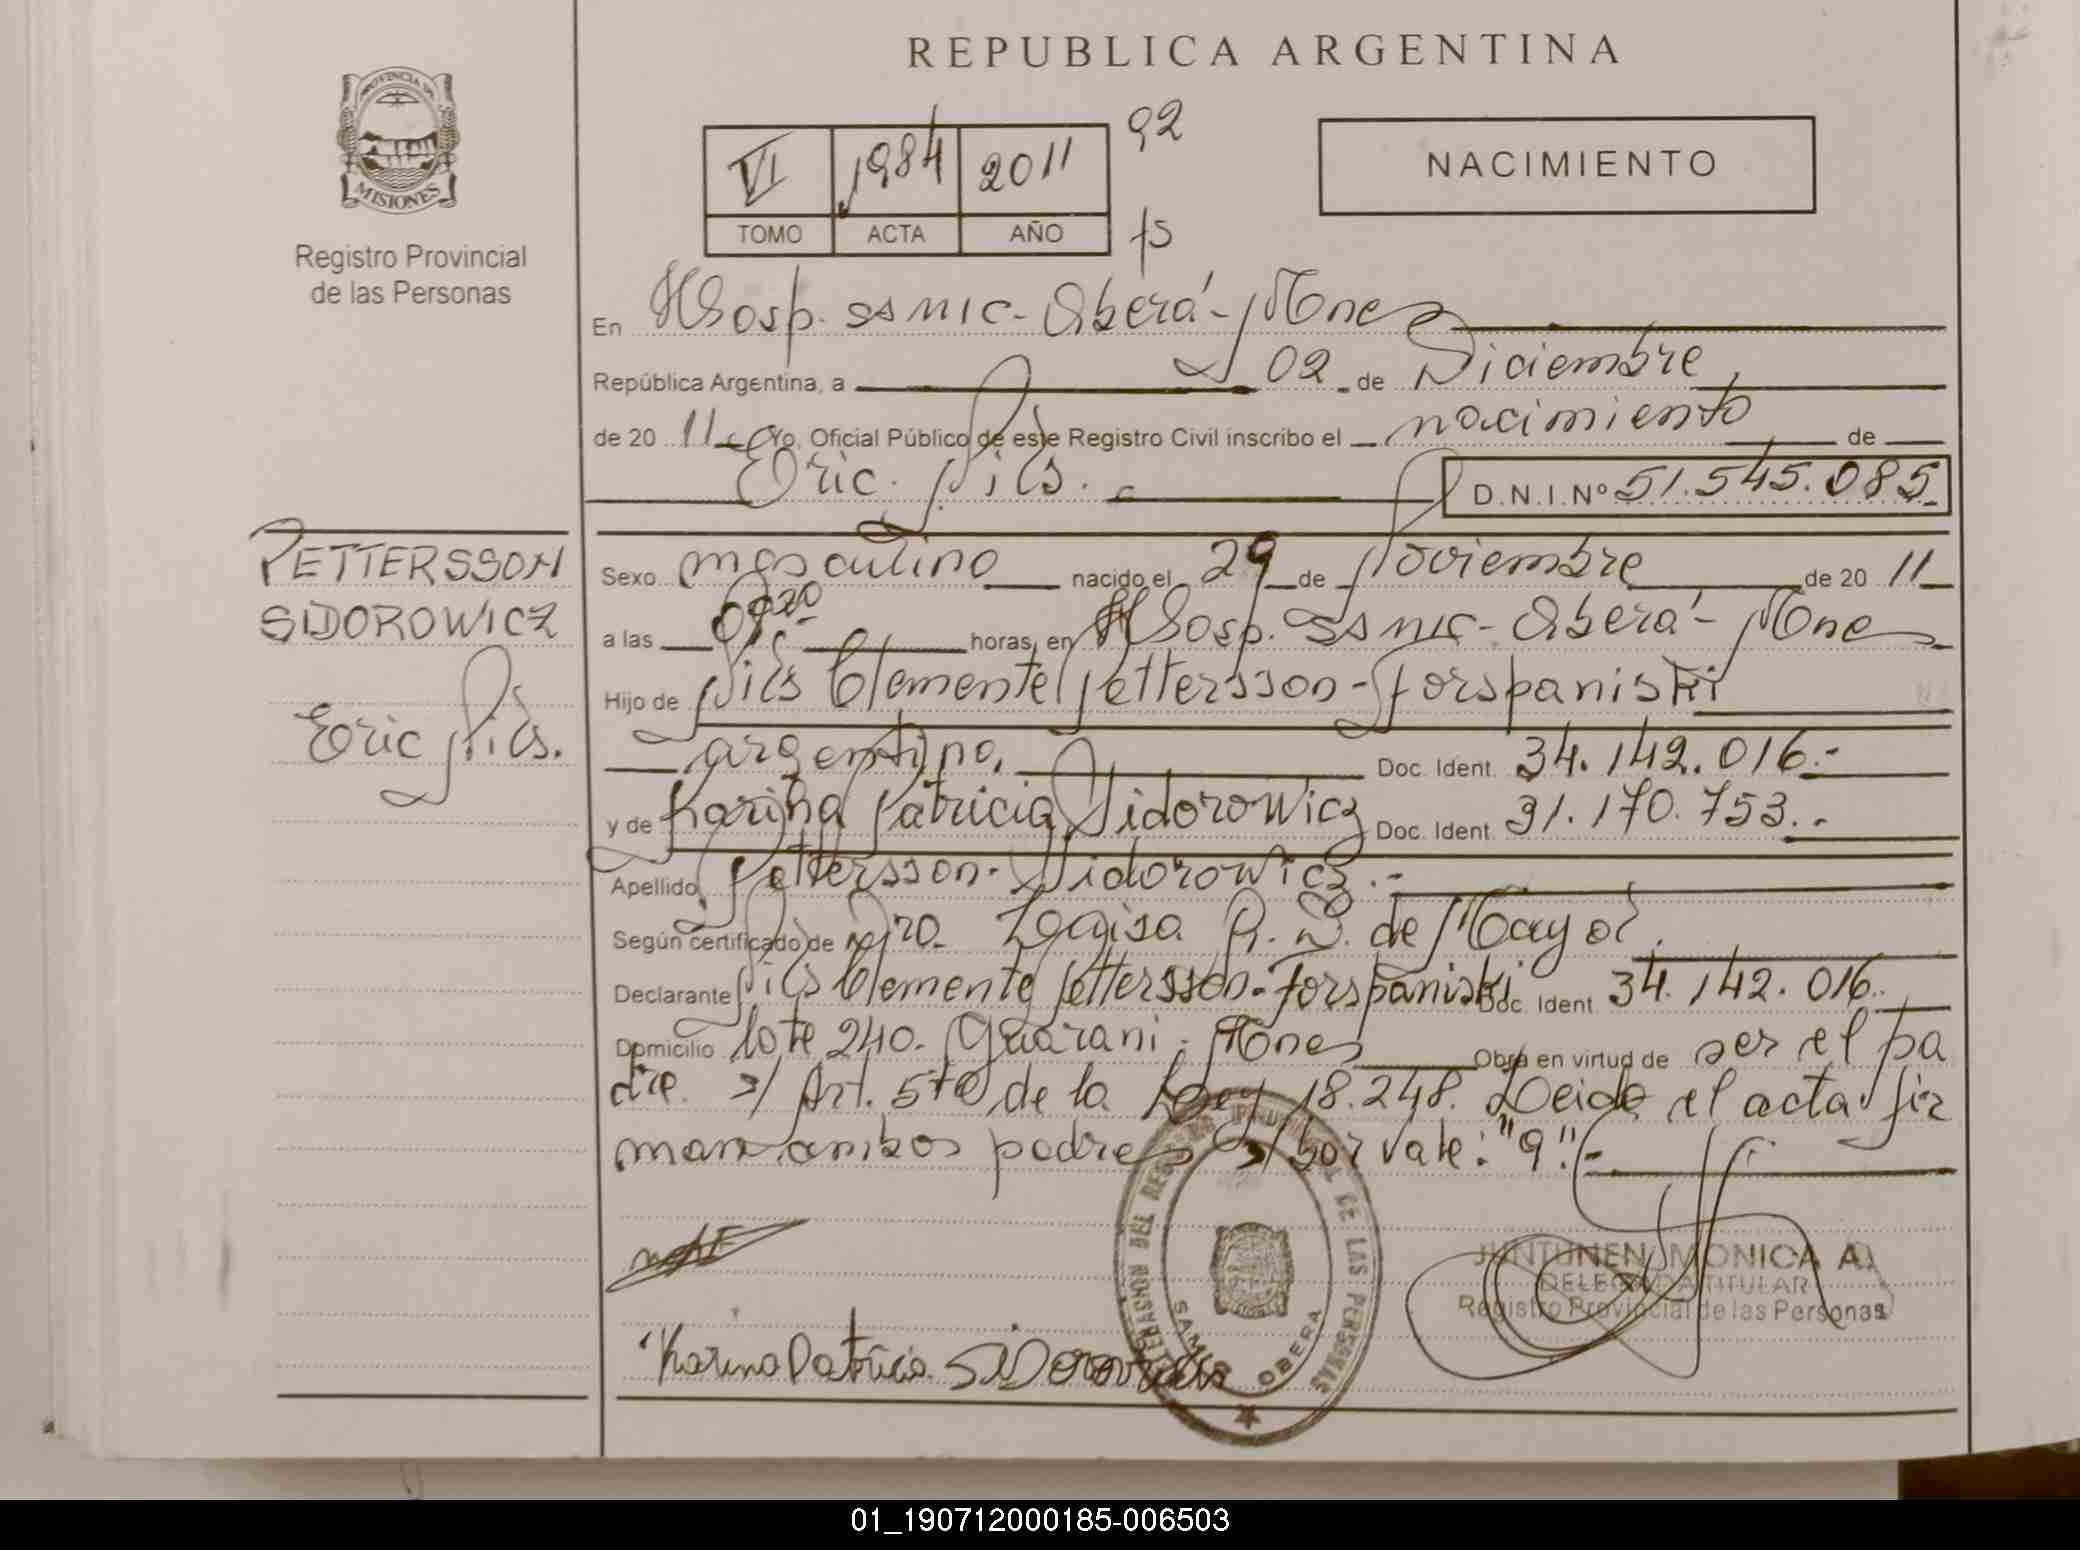 REPUBLICA ARGENTINA
PROVINCIA DE
MISIONES
Registro Provincial
de las Personas
VI 1984 2011 92
TOMO ACTA AÑO fs
NACIMIENTO
En Hosp. SAMIC - Oberá - Mnes
República Argentina, a 02 de Diciembre
de 20 11 Yo, Oficial Público de este Registro Civil inscribo el nacimiento de
Eric Nils. D.N.I.Nº 51.545.085
PETTERSSON
SIDOROWICZ
Eric Nils.
Sexo masculino nacido el 29 de Noviembre de 20 11
a las 09:20 horas, en Hosp. SAMIC - Oberá - Mnes
Hijo de Nils Clemente Pettersson - Forspaniski
argentino. Doc. Ident. 34.142.016.-
y de Karina Patricia Sidorowicz Doc. Ident. 31.170.753.-
Apellido Pettersson - Sidorowicz.-
Según certificado de Dra. R. D. de Mayol.
Declarante Nils Clemente Pettersson - Forspaniski Doc. Ident 34.142.016.
Domicilio lote 240. Guarani - Mnes Obra en virtud de ser el pa
dre. s/ Art. 5to de la Ley 18.248. Leida el acta fir
man ambos padres s/ bor vale: "9".-
Karina Patricia Sidorowicz
DEL REG PROVINCIAL DE LAS PERSONAS
SAMIC OBERA
JUNTUNEN MONICA A.
DELEGADA TITULAR
Registro Provincial de las Personas
01_190712000185-006503